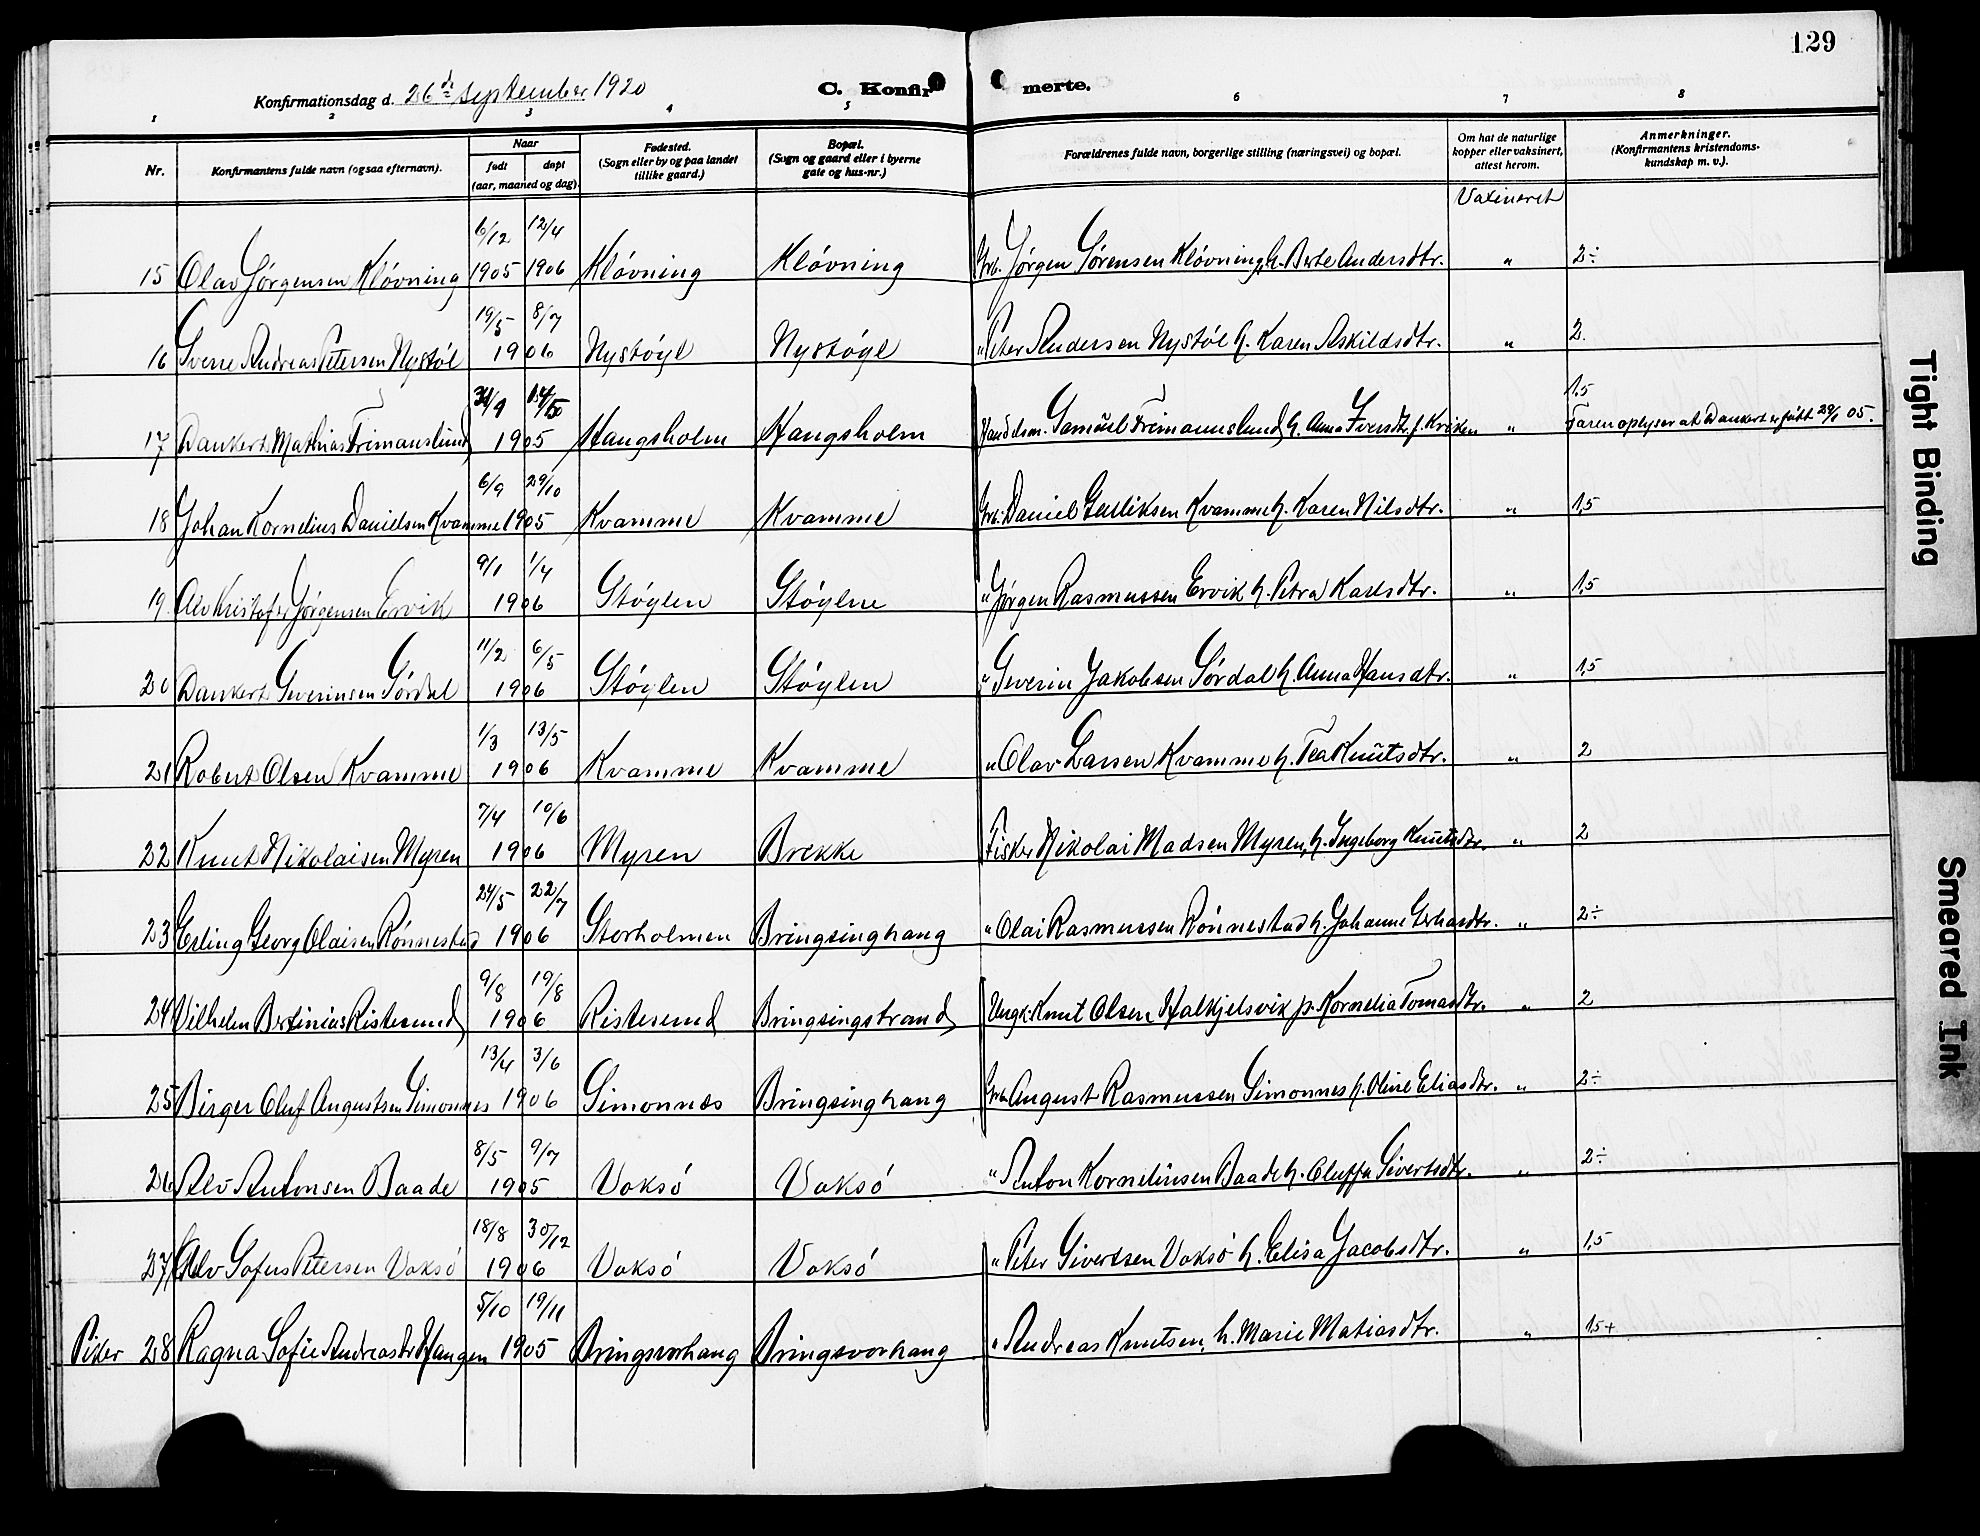 129
Konfirmationsdag d. 26de september 1920 C. Konfirmerte.
1 2 3 4 5 6 7 8
Nr. Konfirmantens fulde navn (ogsaa efternavn). Naar født døpt (aar, maaned og dag) Fødested. (Sogn eller by og paa landet tillike gaard.) Bopæl. (Sogn og gaard eller i byerne gate og hus-nr.) Forældrenes fulde navn, borgerlige stilling (næringsvei) og bopæl. Om hat de naturlige kopper eller vaksinert, attest herom. Anmerkninger. (Konfirmantens kristendoms-kundskap m. v.).
Vaxineret
6/12 12/4
15 Olav Jørgensen Kløvning 1905 1906 Kløvning Kløvning Grb. Jørgen Sørensen Kløvning, h. Berte Andersdtr. " 2÷
19/5 8/7
16 Sverre Andreas Petersen Nystøl 1906 Nystøyl Nystøyl " Peter Andersen Nystøl h. Karen Askildsdtr. " 2.
1,5
17 Dankert Mathias Frimanslund 1905 Haugsholm Haugsholm Handelsm. Samuel Frimannslund, h. Anna Iversdtr. f. " Faren oplyser at Dankert er født 05.
6/9 29/10
18 Johan Kornelius Danielsen Kvamme 1905 Kvamme Kvamme Grb. Daniel Gulliksen Kvamme h. Karen Nilsdtr. " 1,5
9/1 1/4
19 Alv Kristofer Jørgensen Ervik 1906 Støylen Støylne " Jørgen Rasmussen Ervik h. Petra Karlsdtr. " 1,5
11/2 6/5
20 Dankert Severinsen Sørdal 1906 Støylen Støylen " Severin Jakobsen Sørdal h. Anna Hansdtr. " 1,5
1/3 13/5
21 Robert Olsen Kvamme 1906 Kvamme Kvamme " Olav Larsen Kvamme h. Tea Knutsdtr. " 2
7/4 10/6
22 Knut Nikolaisen Myren 1906 Myren Brekke Fisker Nikolai Madsen Myren, h. Ingeborg Knutsdtr. " 2
24/5 22/7
23 Erling Georg Olaisen Rønnestad 1906 Storholmen Bringsinghaug " Olai Rasmussen Rønnestad h. Johanne Gerhardtr. " 2÷
9/8 19/8
24 Vilhelm Bertinius Ristesund 1906 Ristesund Bringsingstrand Ungk. Knut Olsen Halkjelsvik p. Kornelia Tomasdtr. " 2
13/4 3/6
25 Birger Oluf Augustsen Simonnes 1906 Simonnæs Bringsinghaug Grb. August Rasmussen Simonnes h. Oline Eliasdtr. " 2÷
8/5 9/7
26 Alv Antonsen Baade 1905 Voksø Voksø " Anton Kornelinsen Baade h. Oluffa Sivertsdtr. " 2÷
18/8 30/12
27 Alv Sofus Petersen Voksø 1906 Voksø Voksø " Peter Sivertsen Voksø h. Elisa Jacobsdtr. " 1,5
5/10 19/11
Piker 28 Ragna Sofie Andreasdtr Haugen 1905 Bringsvorhaug Bringsvorhaug " Andreas Knutsen, h. Marie Matiasdtr. " 1,5+
Tight Binding
Smeared Ink